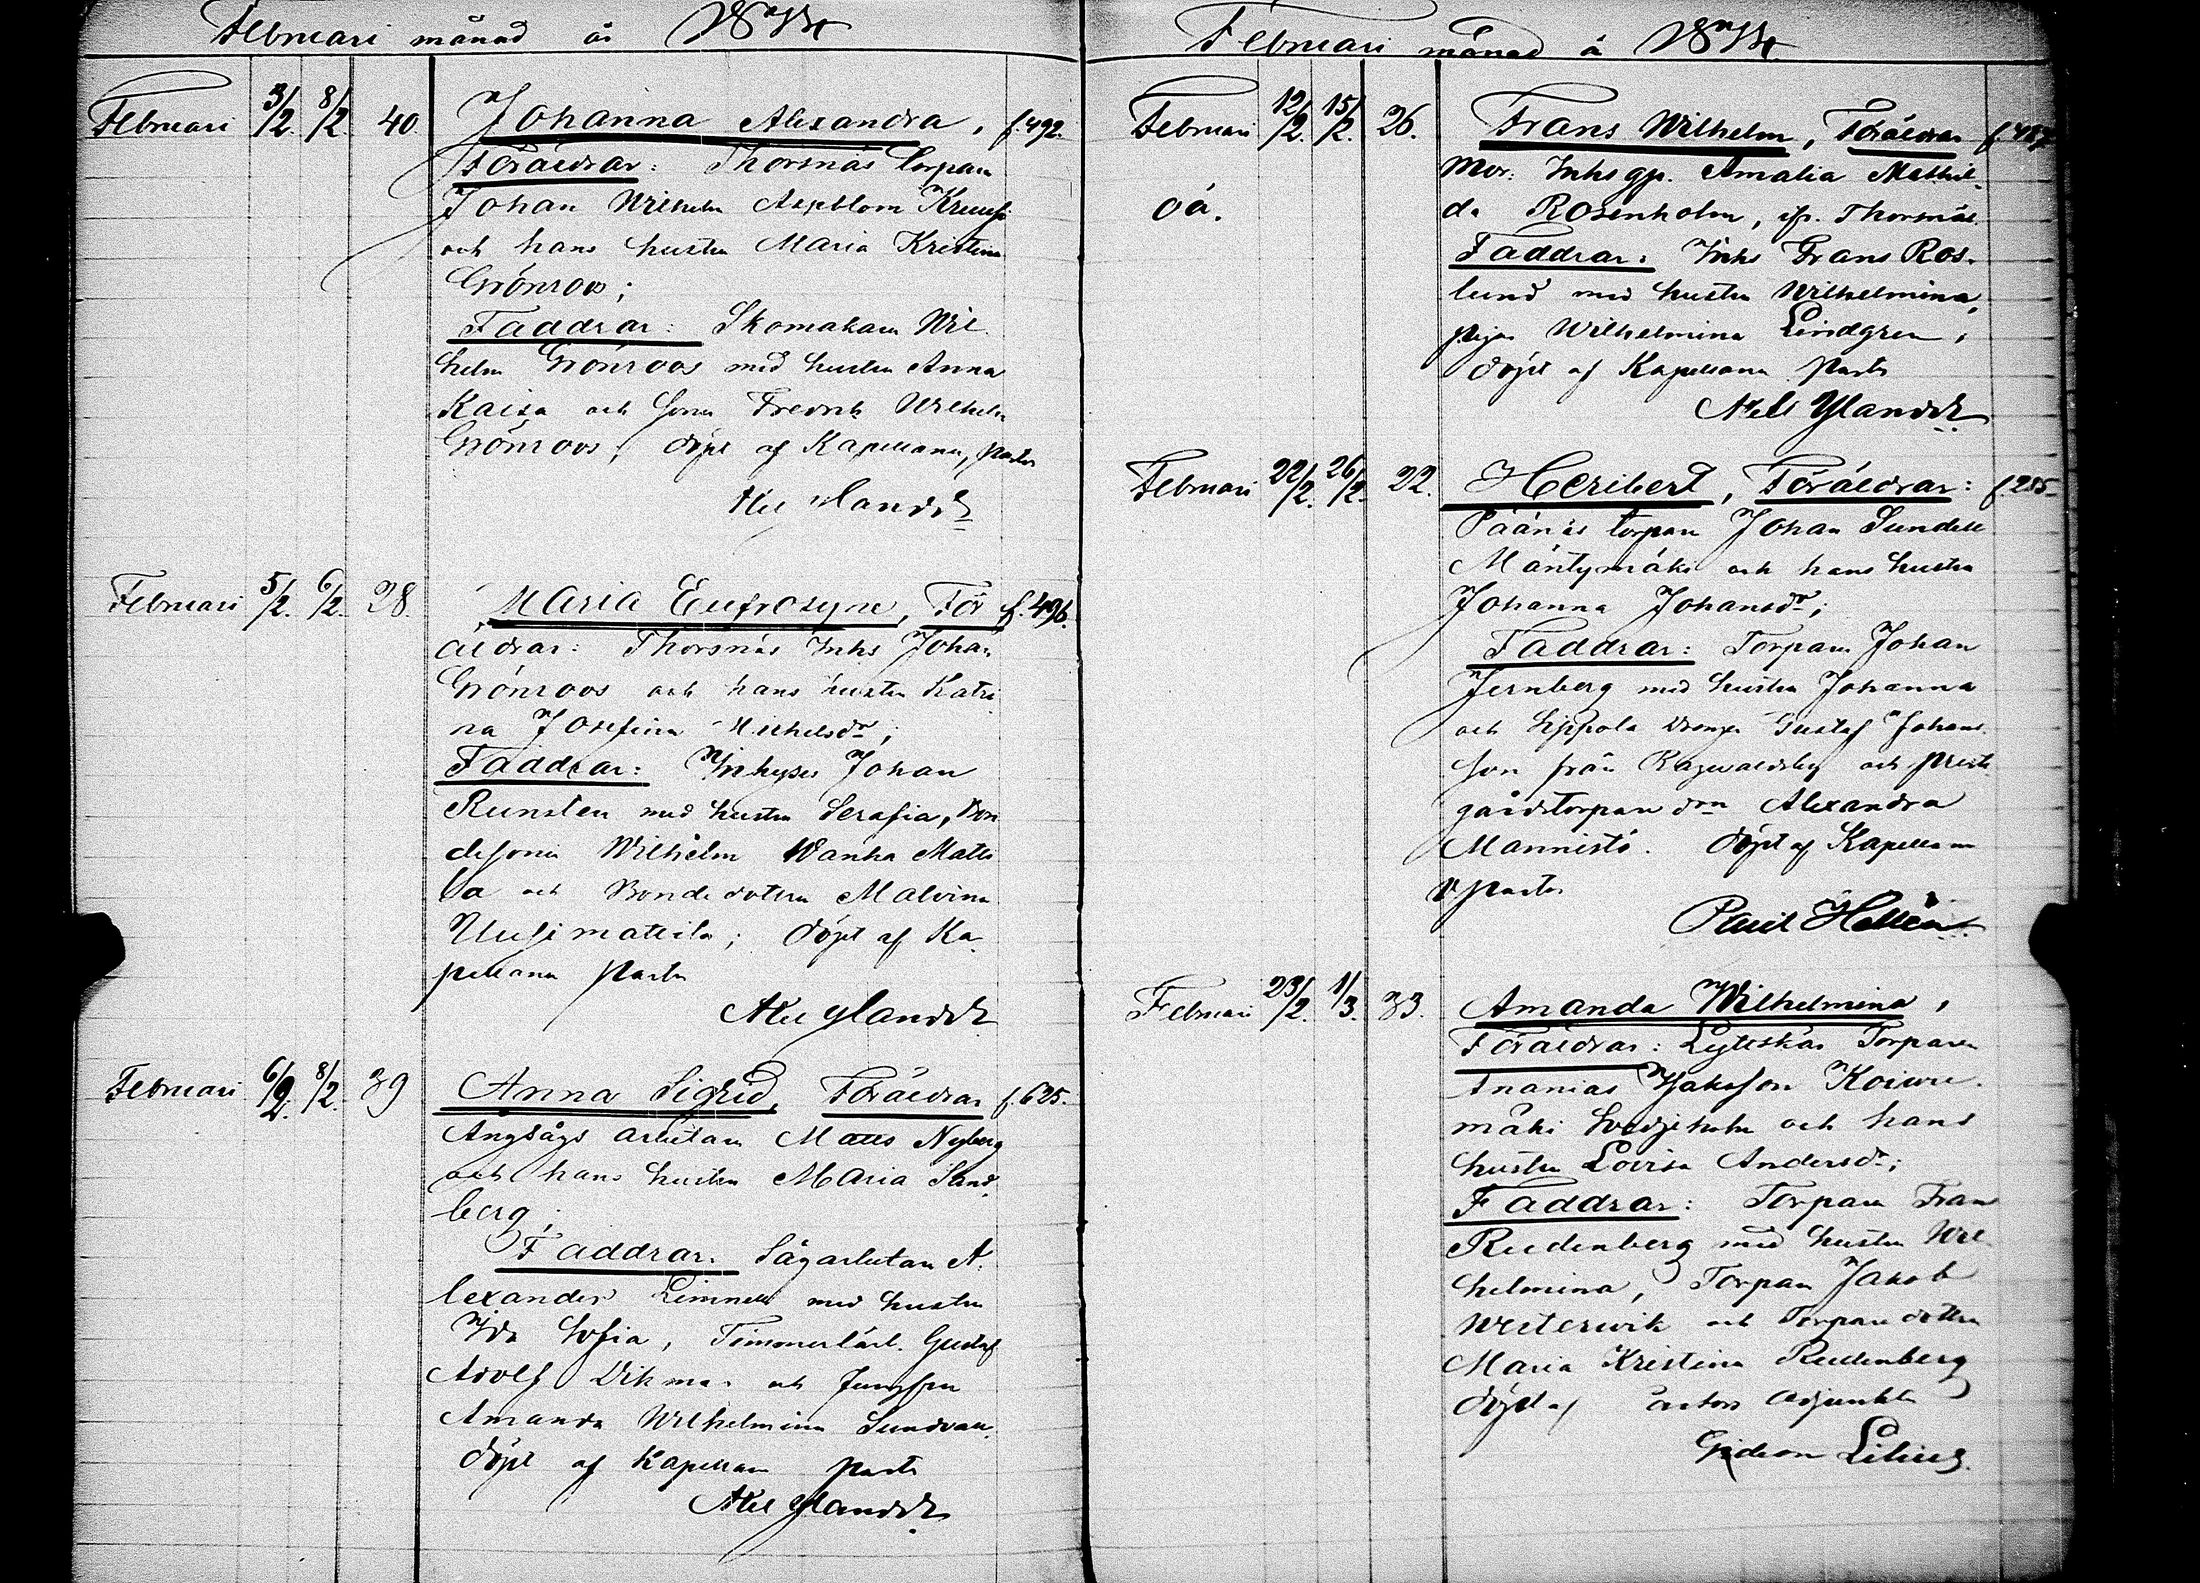 Februari månad år 1874
Februari 3/2 8/2 40 Johanna Alexandra, f. 492.
Föräldrar: Thorsnäs Torparn
Johan Wilhelm Aspblom
och hans hustru Maria Kristina
Grönroos;
Faddrar: Skomakarn Wil
helm Grönroos med hustru Anna
Kaisa och sonen Fredrik Wilhelm
Grönroos; döpt af Kapellanen, pastor
Axel Ylander
Februari 5/2 6/2 28. Maria Eufrosyne, För f. 496.
äldrar: Thorsnäs Inhs Johan
Grönroos och hans hustru Katri
na Josefina Michelsdr;
Faddrar: Inhyses Johan
Runsten med hustru Serafia, Bon
desonen Wilhelm Wanha Matti
la och Bondedottern Malvina
Uusimattila; döpt af Ka
pellanen Pastor
Axel Ylander
Februari 6/2 8/2 39 Anna Sigrid, Föräldrar f. 625.
Ångsågs arbetarn Matts Nyberg
och hans hustru Maria Sand
berg;
Faddrar: Sågarbetarn A
lexander Limnell med hustru
Ida Sofia, Timmerlärl. Gustaf
Adolf Vikman och Jungfrun
Amanda Wilhelmina Sundvall
döpt af Kapellanen Pastor
Axel Ylander
Februari månad år 1874.
Februari 12/2. 15/2. 26. Frans Wilhelm, Föräldrar f. 487.
Mor: Inhs gp. Amalia Mathil
oä. da Rosenholm, ifr. Thorsnäs
Faddrar: Inhs Frans Ros
lund med hustru Wilhelmina,
pigan Wilhelmina Lindgren,
döpt af Kapellanen Pastor
Axel Ylander
Februari 22/2. 26/2. 22. Heribert, Föräldrar: f. 285.
Päänäs torparn Johan Sundell
Mäntymäki och hans hustru
Johanna Johansdr;
Faddrar: Torparn Johan
Jernberg med hustru Johanna
och Sippola Drengen Gustaf Johans
son från Ragwaldsby och prest
gårdstorpare drn Alexandra
Mannistö. döpt af Kapellanen
v. pastor
Paul Hellén
Februari 23/2. 1/3. 33. Amanda Wilhelmina,
Föräldrar: Lyttskär Torparen
Ananias Jaksson Koiwu
mäki Sodjeholm och hans
hustru Lovisa Andersdr;
Faddrar: Torparn Frans
Rudenberg med hustru Wil
helmina, Torparn Jakob
Westerwik och Torpare dottern
Maria Kristina Rudenberg
döpt af astors Adjunkten
Gideon Lilius.